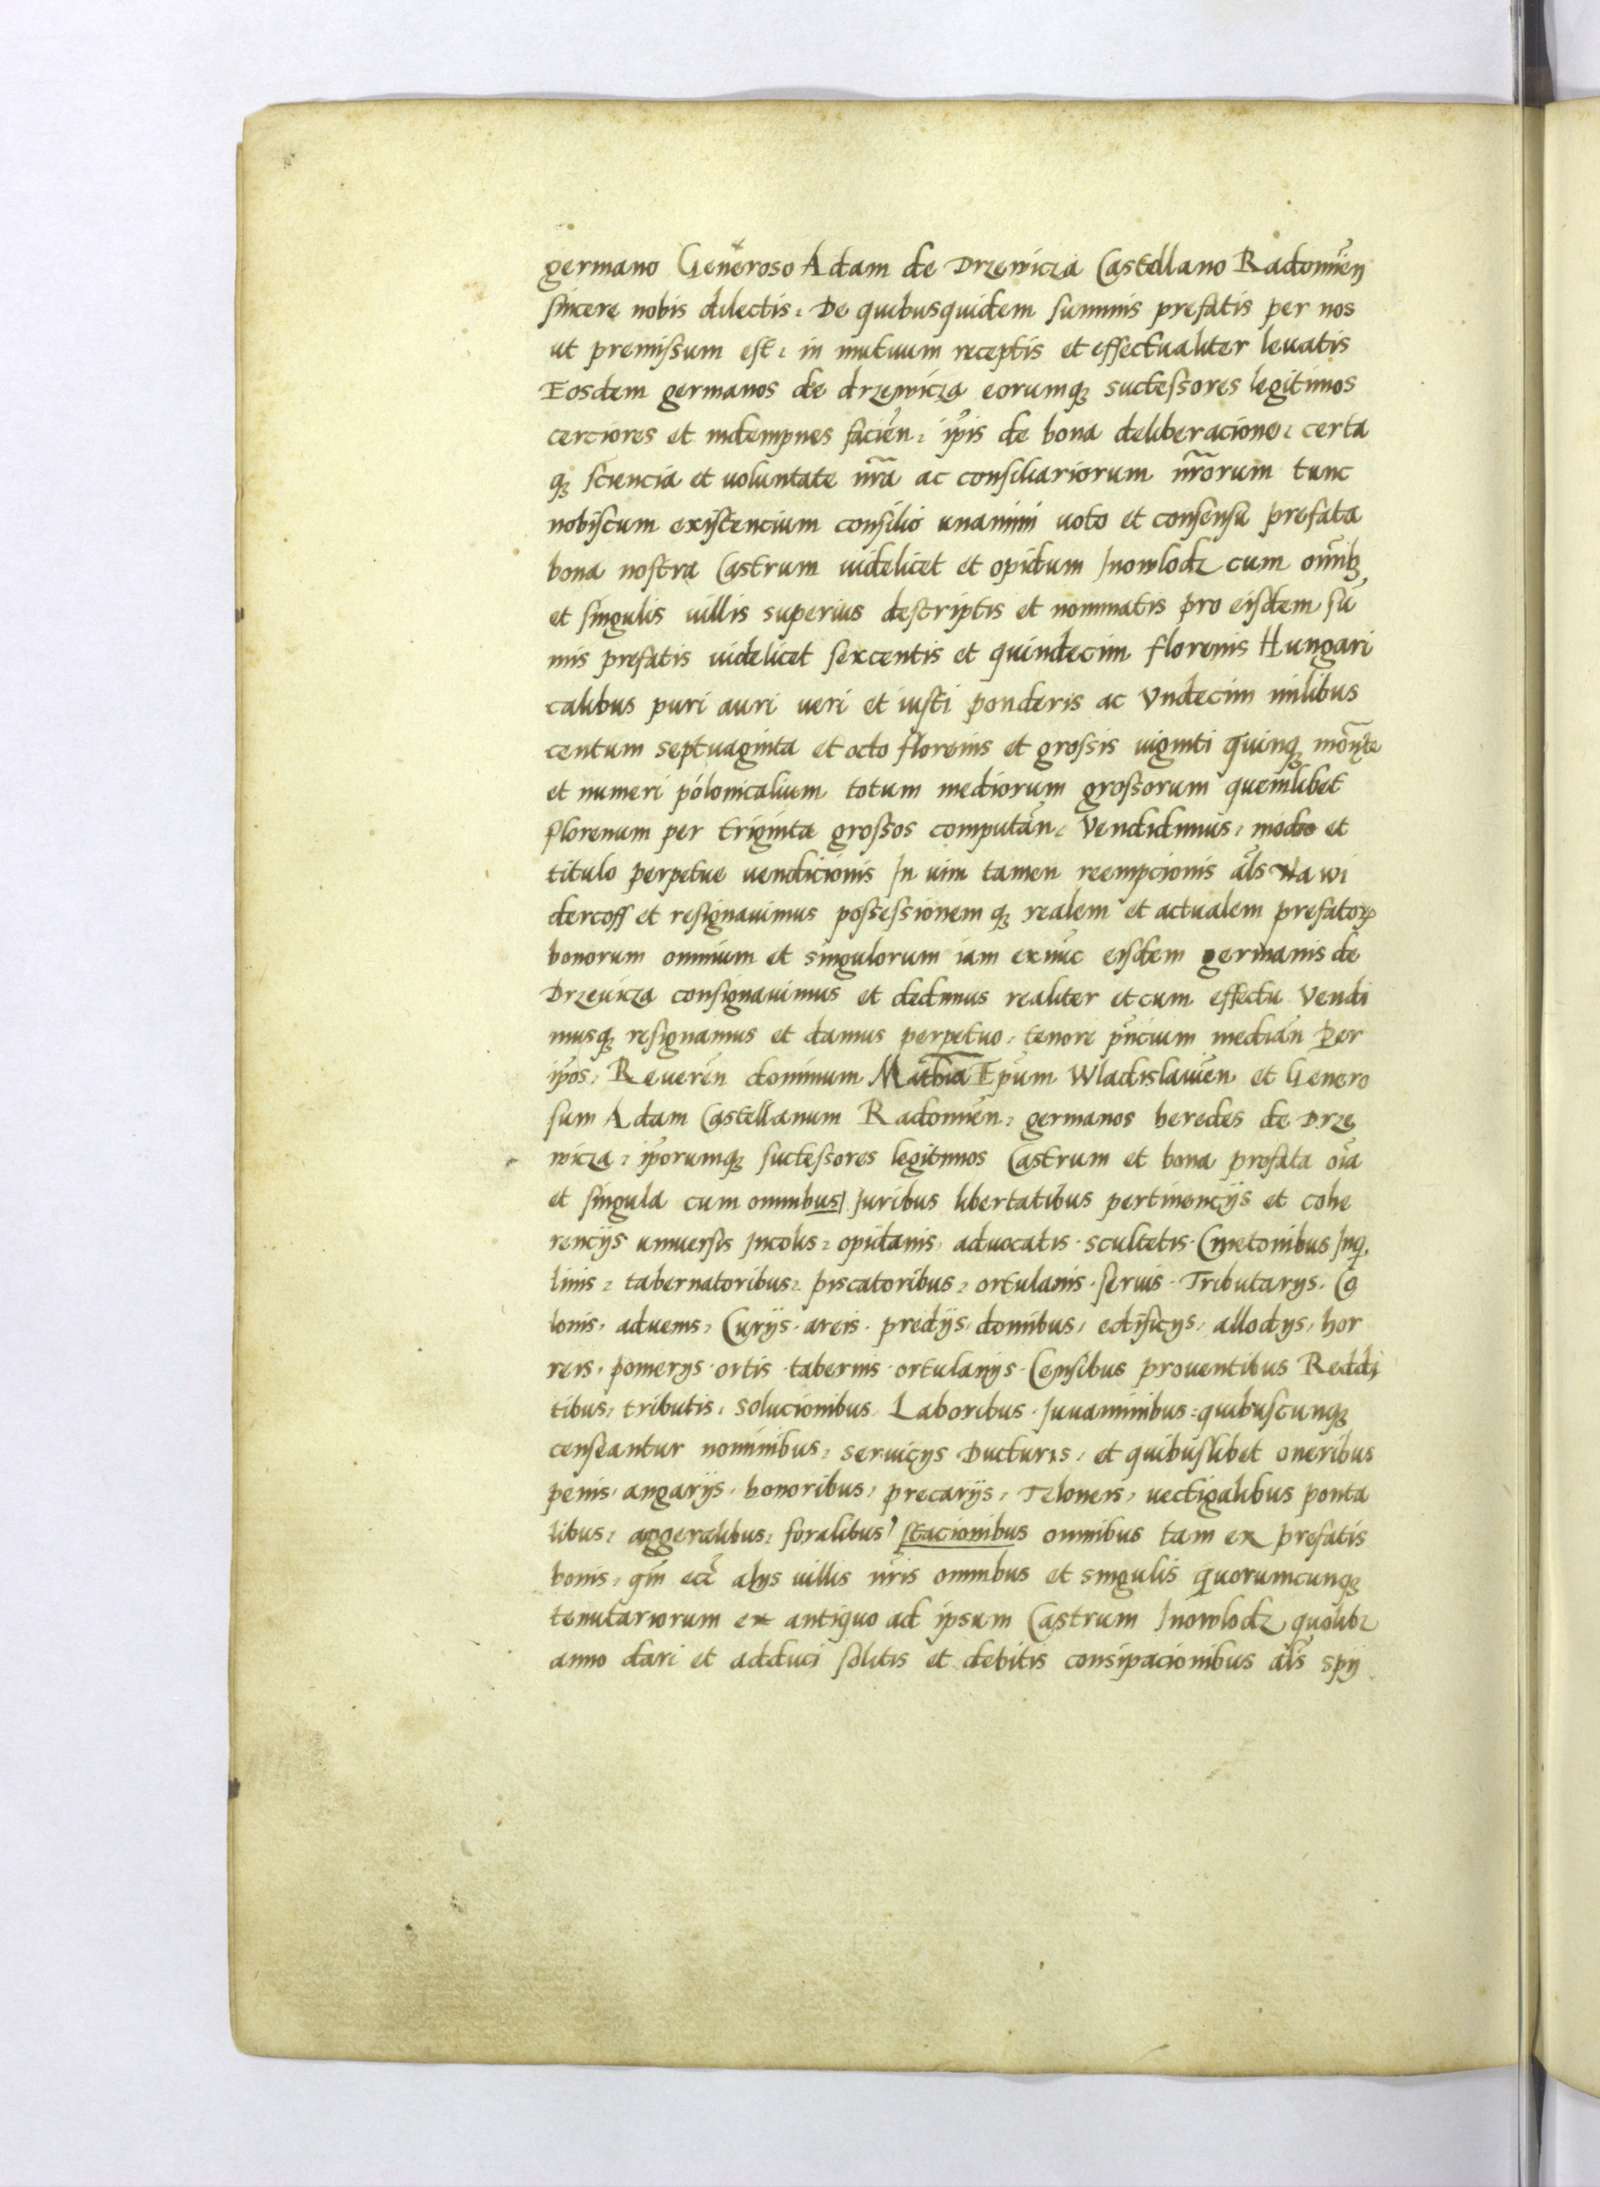 germano Generoso Adam de Drzewicza Castellano Radomien̄
sincere nobis dilectis. De quibusquidem summis prefatis per nos
ut premissum est. in mutuum receptis et effectualiter levatis
Eosdem germanos de drzewicza eorumqꝫ successores legitimos
cerciores et indempnes facien̄. ip̄is de bona deliberacione. certa
qꝫ sciencia et voluntate nr̄a ac consiliariorum nr̄orum tunc
nobiscum existencium consilio unanimi voto et consensu prefata
bona nostra Castrum videlicet et opidum Inowlodz cum om̄ibꝫ
et singulis villis superius descriptis et nominatis pro eisdem sū
mis prefatis videlicet sexcentis et quindecim florenis Hungari
calibus puri auri veri et iusti ponderis ac Undecim milibus
centum septuaginta et octo florenis et grossis viginti quinqꝫ monēte
et numeri polonicalium totum mediorum grossorum quemlibet
florenum per triginta grossos computan̄. Vendidimus. modo et
titulo perpetue vendicionis In vim tamen reempcionis al̄s Na wi
dercoff et resignavimus possessionem qꝫ realem et actualem prefatoꝝ
bonorum omnium et singulorum iam exnūc eisdem germanis de
Drzevicza consignavimus et dedimus realiter et cum effectu Vendi
musqꝫ resignamus et damus perpetuo. tenore pn̄cium median̄ Per
ip̄os. Reveren̄ dominum Mathia Ep̄um Wladislavien̄ et Genero
sum Adam Castellanum Radomien̄. germanos heredes de Drze
wicza. ip̄orumqꝫ successores legitimos Castrum et bona prefata oīa
et singula cum omnibus Juribus libertatibus pertinencijs et cohe
rencijs universis Incolis. opidanis advocatis. scultetis. Cmetonibus Inqͥ
linis. tabernatoribus. piscatoribus. ortulanis. servis. Tributarijs. Co
lonis. advenis. Curijs. areis. predijs. domibus. edificijs. allodijs. hor
reis. pomerijs. ortis. tabernis. ortulanijs. Censibus proventibus Reddi
tibus. tributis. solucionibus Laboribus. Iuvaminibus. quibuscunqꝫ
censeantur nominibus. servicijs Ducturis. et quibuslibet oneribus
penis. angarijs. honoribus. precarijs. Teloneis. vectigalibus ponta
libus. aggeralibus. foralibus stacionibus omnibus tam ex prefatis
bonis. qm̄ ecī alijs villis nr̄is omnibus et singulis quorumcunqꝫ
tenutariorum ex antiquo ad ipsum Castrum Inowlodz quolibꝫ
anno dari et adduci solitis et debitis consipacionibus al̄s spij